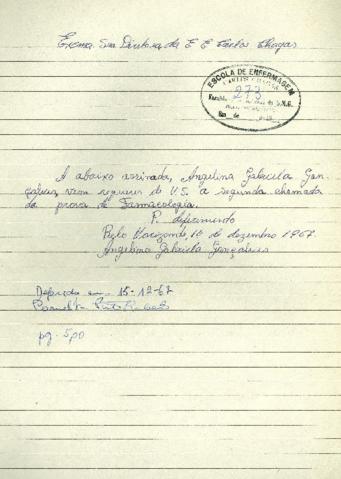 Exma. Sra Diretora da E E Carlos Chagas
ESCOLA DE ENFERMAGEM
CARLOS CHAGAS
273
A abaixo assinada, Angelina Gabriela Gon-
çalves, vem requerer de V.S. a segunda chamada
da prova de Farmacologia.
P. deferimento
Belo Horizonte, 10 de dezembro 1967.
Angelina Gabriela Gonçalves
Deferido em 15-12-67
pg. 5,00